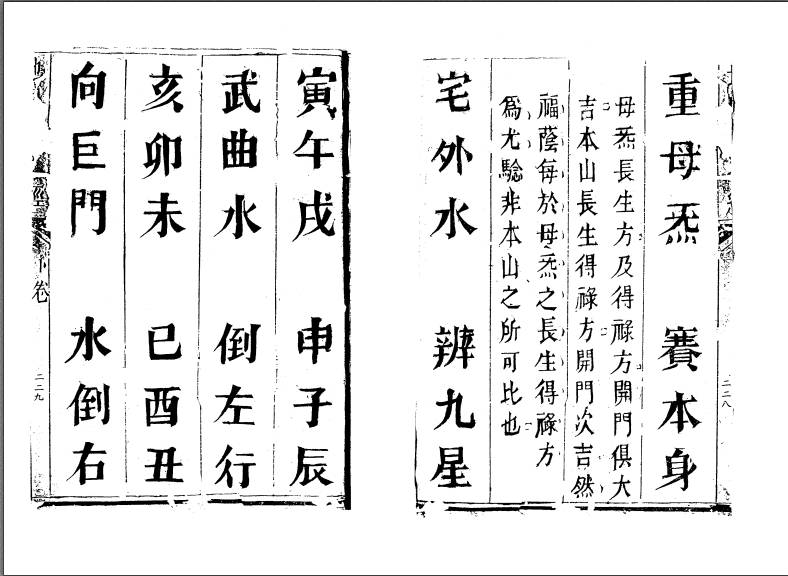 重母炁 賽本身
母炁長生方及得祿方開門俱大
吉本山長生得祿方開門次吉然
福蔭每於母炁之長生得祿方
爲尤驗非本山之所可比也
宅外水 辨九星
二二八
寅午戌 申子辰
武曲水 倒左行
亥卯未 巳酉丑
向巨門 水倒右
卷
二二九